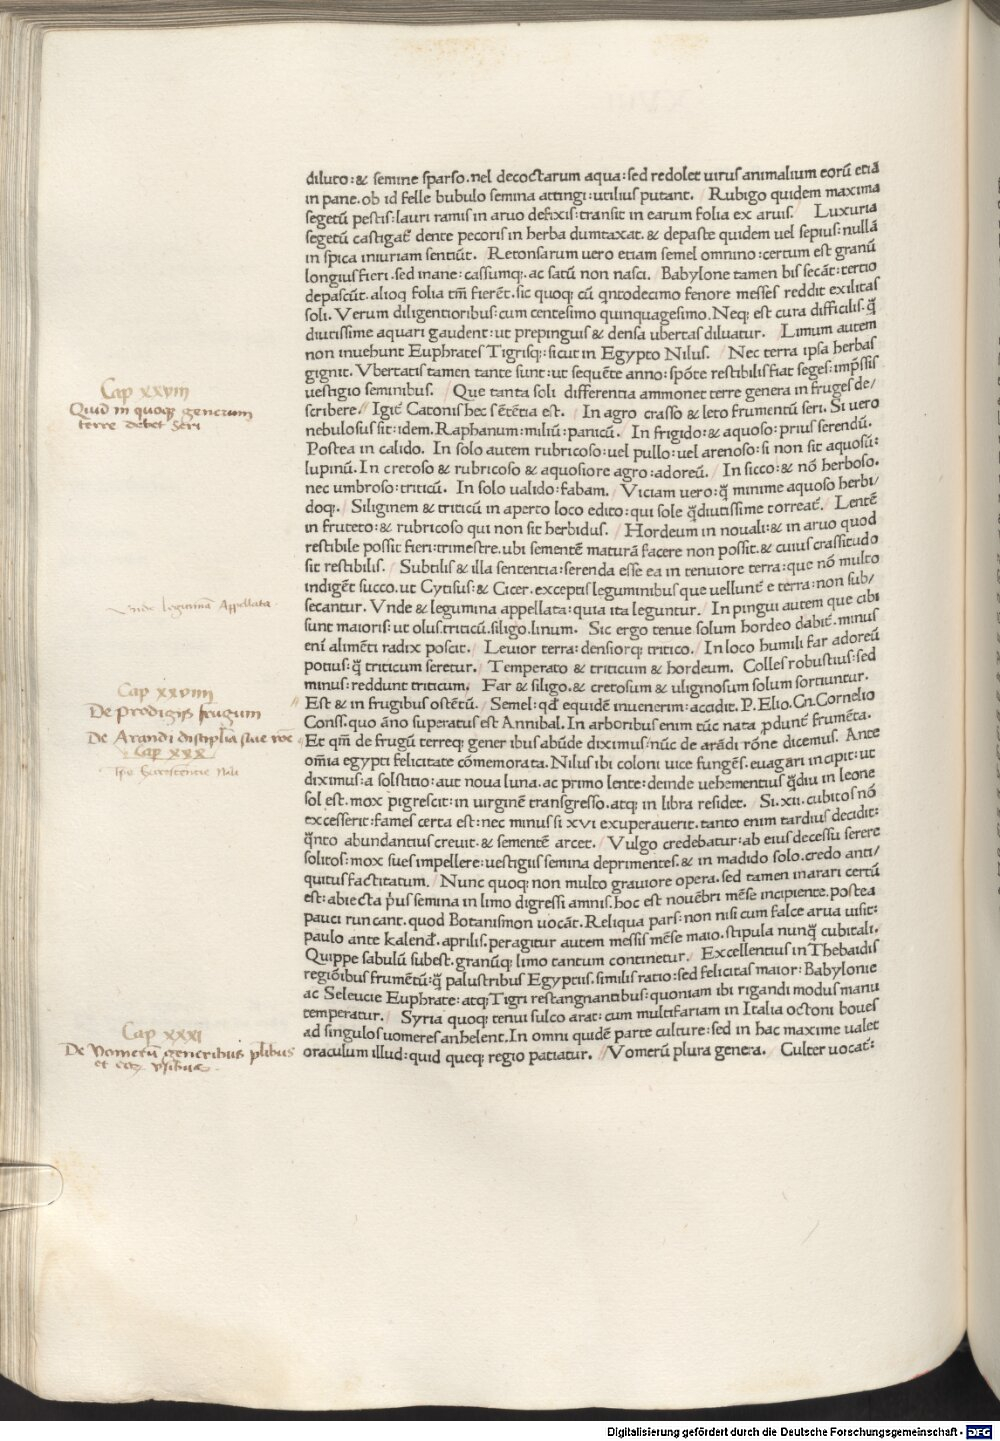 diluto:& semine sparso.nel decoctarum aqua:sed redolet uirus animalium eorū etiā
in pane.ob id felle bubulo semina attingi:utilius putant. / Rubigo quidem maxima
segetū pestis:lauri ramis in aruo defixis:transit in earum folia ex aruis. / Luxuria
segetū castigat̄ dente pecoris in herba dumtaxat.& depaste quidem uel sepius:nullā
in spica iniuriam sentiūt. / Retonsarum uero etiam semel omnino:certum est granū
longius fieri.sed inane:cassumq;.ac satū non nasci. / Babylone tamen bis secāt:tertio
depascūt.alioq folia tm̄ fierēt.sic quoq; cū qntodecimo fenore messes reddit exilitas
soli. Verum diligentioribus:cum centesimo quinquagesimo.Neq; est cura difficilis.q̄
diutissime aquari gaudent:ut prepinguis & densa ubertas diluatur. / Limum autem
non inuehunt Euphrates Tigrisq;:sicut in Egypto Nilus. / Nec terra ipsa herbas
gignit. Vbertatis tamen tante sunt:ut sequēte anno:spōte restibilis fiat seges:imp̄ssis
uestigio seminibus. / Que tanta soli differentia ammonet terre genera in fruges de/
scribere. // Igit̄ Catonis hec sētētia est. / In agro crasso & leto frumentū seri. Si uero
nebulosus sit:idem.Raphanum:miliū:panicū. / In frigido:& aquoso:prius serendū.
Postea in calido. In solo autem rubricoso:uel pullo:uel arenoso:si non sit aquosū:
lupinū.In cretoso & rubricoso & aquosiore agro:adoreū. / In sicco:& nō herboso.
nec umbroso:triticū. In solo ualido:fabam. / Viciam uero:q̄ minime aquoso herbi/
doq;. / Siliginem & triticū in aperto loco edito:qui sole q̄diutissime torreat̄. / Lentē
in fruteto:& rubricoso qui non sit herbidus. / Hordeum in nouali:& in aruo quod
restibile possit fieri:trimestre.ubi sementē maturā facere non possit.& cuius crassitudo
sit restibilis. / Subtilis & illa sententia:serenda esse ea in tenuiore terra:que nō multo
indigēt succo.ut Cytisus:& Cicer.exceptis leguminibus que uellunt̄ e terra:non sub/
secantur. Vnde & legumina appellata:quia ita leguntur. / In pingui autem que cibi
sunt maioris:ut olus.triticū.siligo.linum. Sic ergo tenue solum hordeo dabit̄.minus
enī alimēti radix poscit. / Leuior terra:densiorq; tritico. / In loco humili far adoreū
potius:q̄ triticum seretur. / Temperato & triticum & hordeum. Colles robustius:sed
minus:reddunt triticum. / Far & siligo.& cretosum & uliginosum solum sortiuntur.
// Est & in frugibus ostētū. / Semel:qd̄ equidē inuenerim:accidit. P.Elio.Cn.Cornelio
Conss.quo āno superatus est Annibal.In arboribus enim tūc nata ꝓdunt̄ frumēta.
Et qm̄ de frugū terreq; gener ibus abūde diximus:nūc de arādi rōne dicemus. Ante
om̄ia egypti felicitate cōmemorata.Nilus ibi coloni uice fungēs.euagari incipit:ut
diximus:a solstitio:aut noua luna.ac primo lente:deinde uehementius q̄diu in leone
sol est.mox pigrescit:in uirginē transgresso.atq; in libra residet. / Si.xii.cubitos nō
excesserit:fames certa est:nec minus si xvi exuperauerit.tanto enim tardius decidit:
q̄nto abundantius creuit.& sementē arcet. / Vulgo credebatur:ab eius decessu serere
solitos:mox sues impellere:uestigiis semina deprimentes.& in madido solo.credo anti/
quitus factitatum. / Nunc quoq; non multo grauiore opera.sed tamen inarari certū
est:abiecta p̄us semina in limo digressi amnis.hoc est nouēbri mēse incipiente.postea
pauci runcant.quod Botanismon uocāt.Reliqua pars:non nisi cum falce arua uisit:
paulo ante kalend̄.aprilis.peragitur autem messis mēse maio.stipula nunq̄ cubitali.
Quippe sabulū subest.granūq; limo tantum continetur. / Excellentius in Thebaidis
regiōibus frumētū:q̄ palustribus Egyptus.similis ratio:sed felicitas maior:Babylonie
ac Seleucie Euphrate:atq; Tigri restangnantibus:quoniam ibi rigandi modus manu
temperatur. / Syria quoq; tenui sulco arat:cum multifariam in Italia octoni boues
ad singulos uomeres anhelent.In omni quidē parte culture:sed in hac maxime ualet
oraculum illud:quid queq; regio patiatur. // Vomerū plura genera. / Culter uocat̄:
Cap xxviii
Quid in quoq; generum
terre debet Seri
Vnde leguminā Appellata
Cap xxviiii
De Prodigijs frugum
De Arandi disciplīa siue rōe
Cap xxx
Cap xxxi
De Vomerū generibus plibus
et eoꝝ vsibus
Digitalisierung gefördert durch die Deutsche Forschungsgemeinschaft - DFG